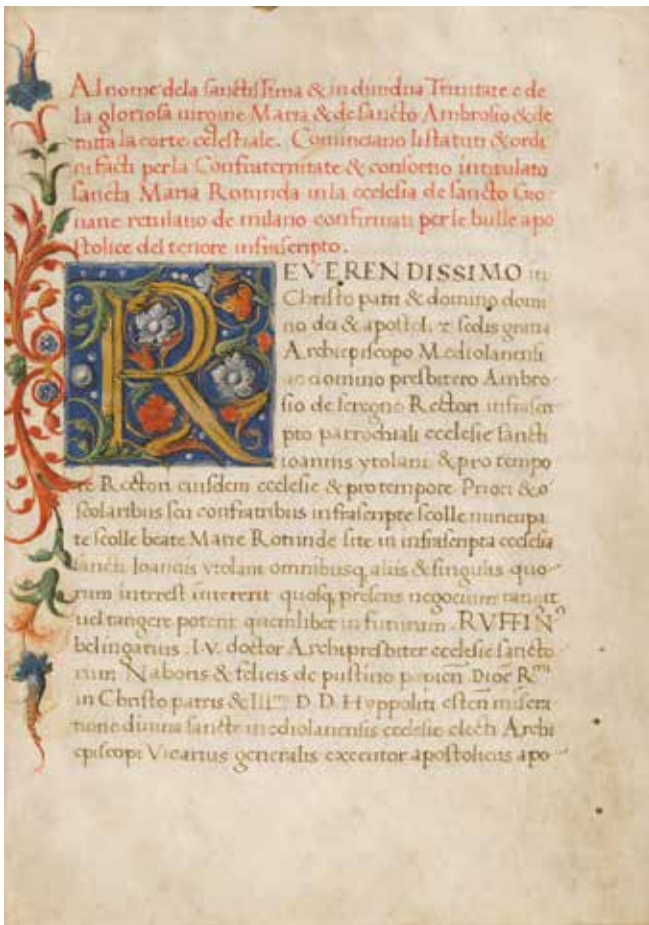 Al nome dela sanctissima & indiuidua Trinitate e de
la gloriosa uirgine Maria & de sancto Ambrosio & de
tutta la corte celestiale. Cominciano li statuti & ordi
ni facti per la Confraternitate & consortio intitulato
sancta Maria Rotunda in la ecclesia de sancto Gio
uane yttulano de milano confirmati per le bulle apo
stolice del tenore infrascripto.
REVERENDISSIMO in
Christo patri & domino domi
no dei & apostol. sedis gratia
Archiepiscopo Mediolanensi
ac domino presbitero Ambro
sio de seregno Rectori infrascri
pto parrochiali ecclesie sancti
ioannis ytolani & pro tempo
re Rectori eiusdem ecclesie & pro tempore Priori &
scolaribus seu confratribus infrascripte scolle nuncupa
te scolle beate Marie Rotunde site in infrascripta ecclesia
sancti Ioannis ytolani omnibusq aliis & singulis quo
rum interest intererit quosq presens negocium tangit
uel tangere poterit quemlibet in futurum. RUFFIN⁹
belingarius. I. V. doctor Archipresbiter ecclesie sancto
rum Naboris & felicis de pustino papien̄ Dioc̄ Rᵐⁱ
in Christo patris & Illᵐⁱ D. D. Hyppoliti esten̄ misera
tione diuina sancte mediolanensis ecclesie electi Archi
episcopi Vicarius generalis executor apostolicus apo